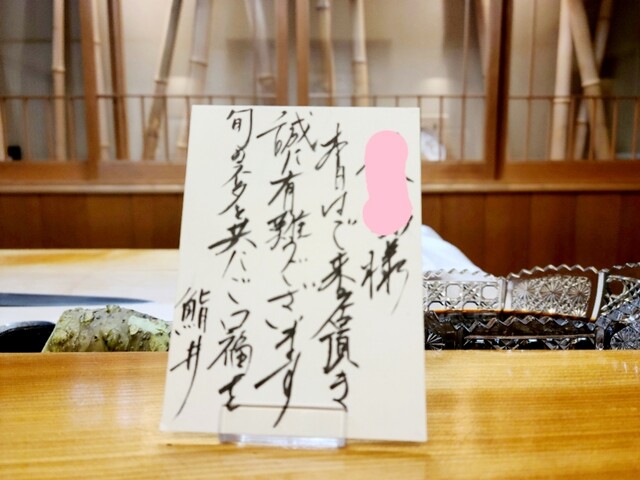 様
本日はご来店頂き
誠に有難うございます
旬の姿と共に口福を
鮨井